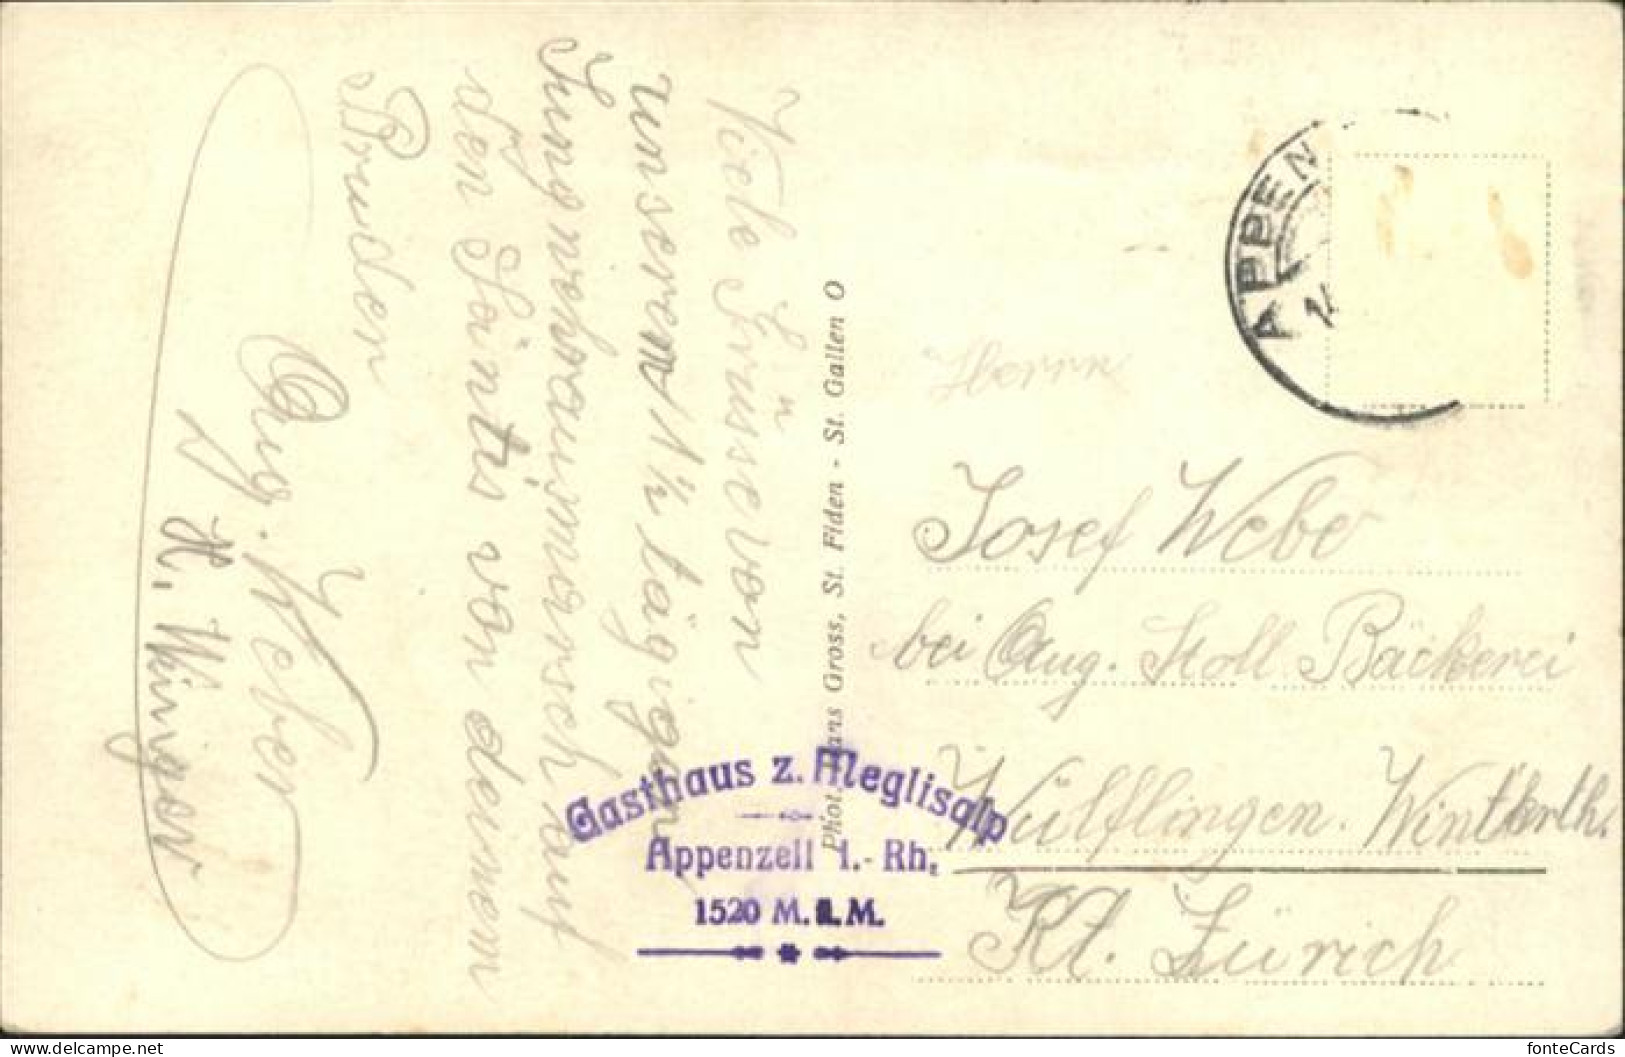 Viele Grüsse von
unserem 1½ tägigen
Jungwehrausmarsch auf
den Säntis von deinem
Bruder
Aug. Weber
H. Wingor
Phot. Hans Gross, St. Fiden - St. Gallen O
APPEN
Herrn
Josef Weber
bei Aug. Stoll Bäckerei
Wülflingen. Winterth.
Kt. Zürich
Gasthaus z. Meglisalp
Appenzell I.-Rh.
1520 M. ü. M.
fonteCards